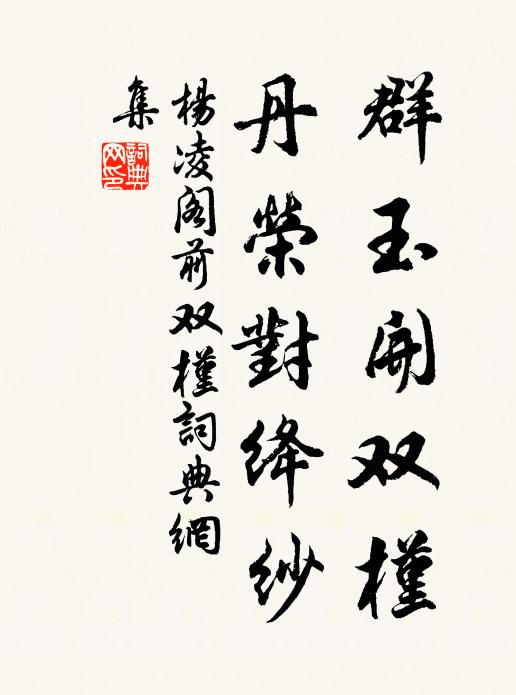 群玉開双槿
丹榮對绛纱
楊凌阁前双槿詞典網
集
詞典
网印